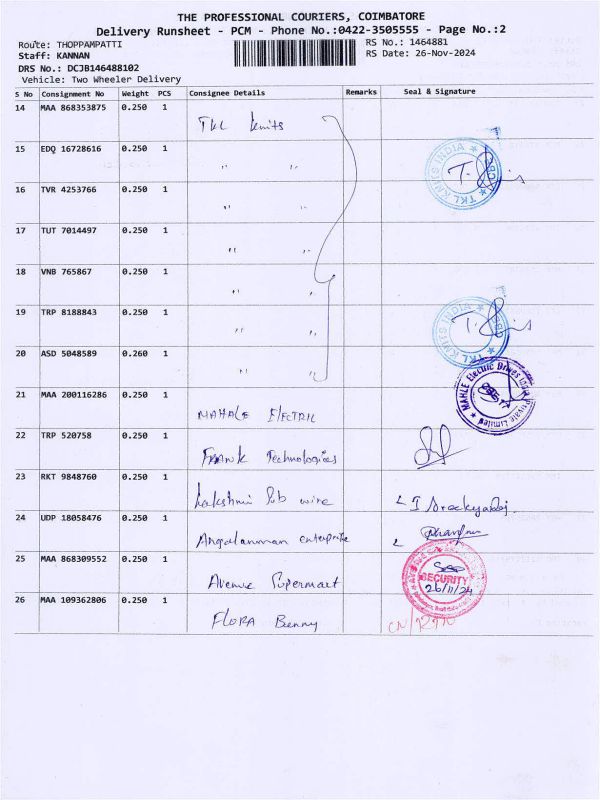 THE PROFESSIONAL COURIERS, COIMBATORE
Delivery Runsheet - PCM - Phone No.:0422-3505555 - Page No.:2
Route: THOPPAMPATTI RS No.: 1464881
Staff: KANNAN RS Date: 26-Nov-2024
DRS No.: DCJB146488102
Vehicle: Two Wheeler Delivery
S No Consignment No Weight PCS Consignee Details Remarks Seal & Signature
14 MAA 868353875 0.250 1 TKL Knits
15 EDQ 16728616 0.250 1 " "
TKL KNITS INDIA
16 TVR 4253766 0.250 1 " "
17 TUT 7014497 0.250 1 " "
18 VNB 765867 0.250 1 " "
19 TRP 8188843 0.250 1 " "
TKL KNITS INDIA
20 ASD 5048589 0.260 1 " "
21 MAA 200116286 0.250 1 MAHALE ELECTRIC
MAHLE Electric Drives India Private Limited
22 TRP 520758 0.250 1 Frank Technologies
23 RKT 9848760 0.250 1 Lakshmi Sub wire
24 UDP 18058476 0.250 1 Angalamman enterprise
25 MAA 868309552 0.250 1 Avenue Supermart
SECURITY
26/11/24
26 MAA 109362806 0.250 1 FLORA Benny